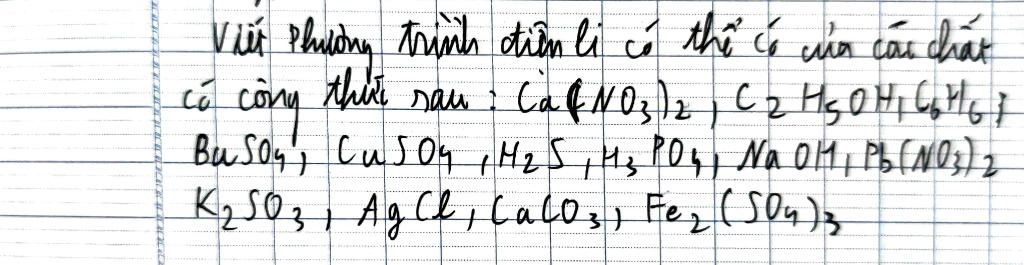 Viết phương trình điện li có thể có của các chất
có công thức sau : Ca(NO3)2, C2H5OH, C6H6,
BaSO4, CuSO4, H2S, H3PO4, NaOH, Pb(NO3)2
K2SO3, AgCl, CaCO3, Fe2(SO4)3